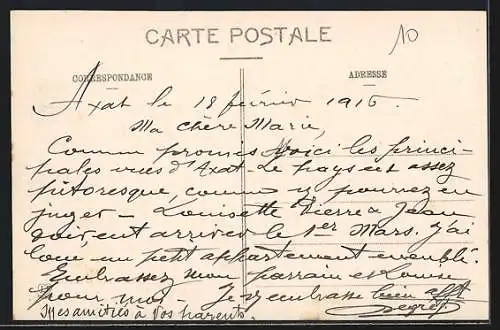 CARTE POSTALE
10
CORRESPONDANCE
ADRESSE
Axat le 18 février 1915.
Ma chère Marie,
Comme promis voici les princi-
pales vues d'Axat. Le pays est assez
pittoresque, comme y pourrez en
juger – Louisette Pierre & Jean
doivent arriver le 1er Mars. J'ai
loué un petit appartement meublé.
Embrassez mon parrain et Louise
pour moi – Je v. embrasse bien afft
Mes amitiés à vos parents.